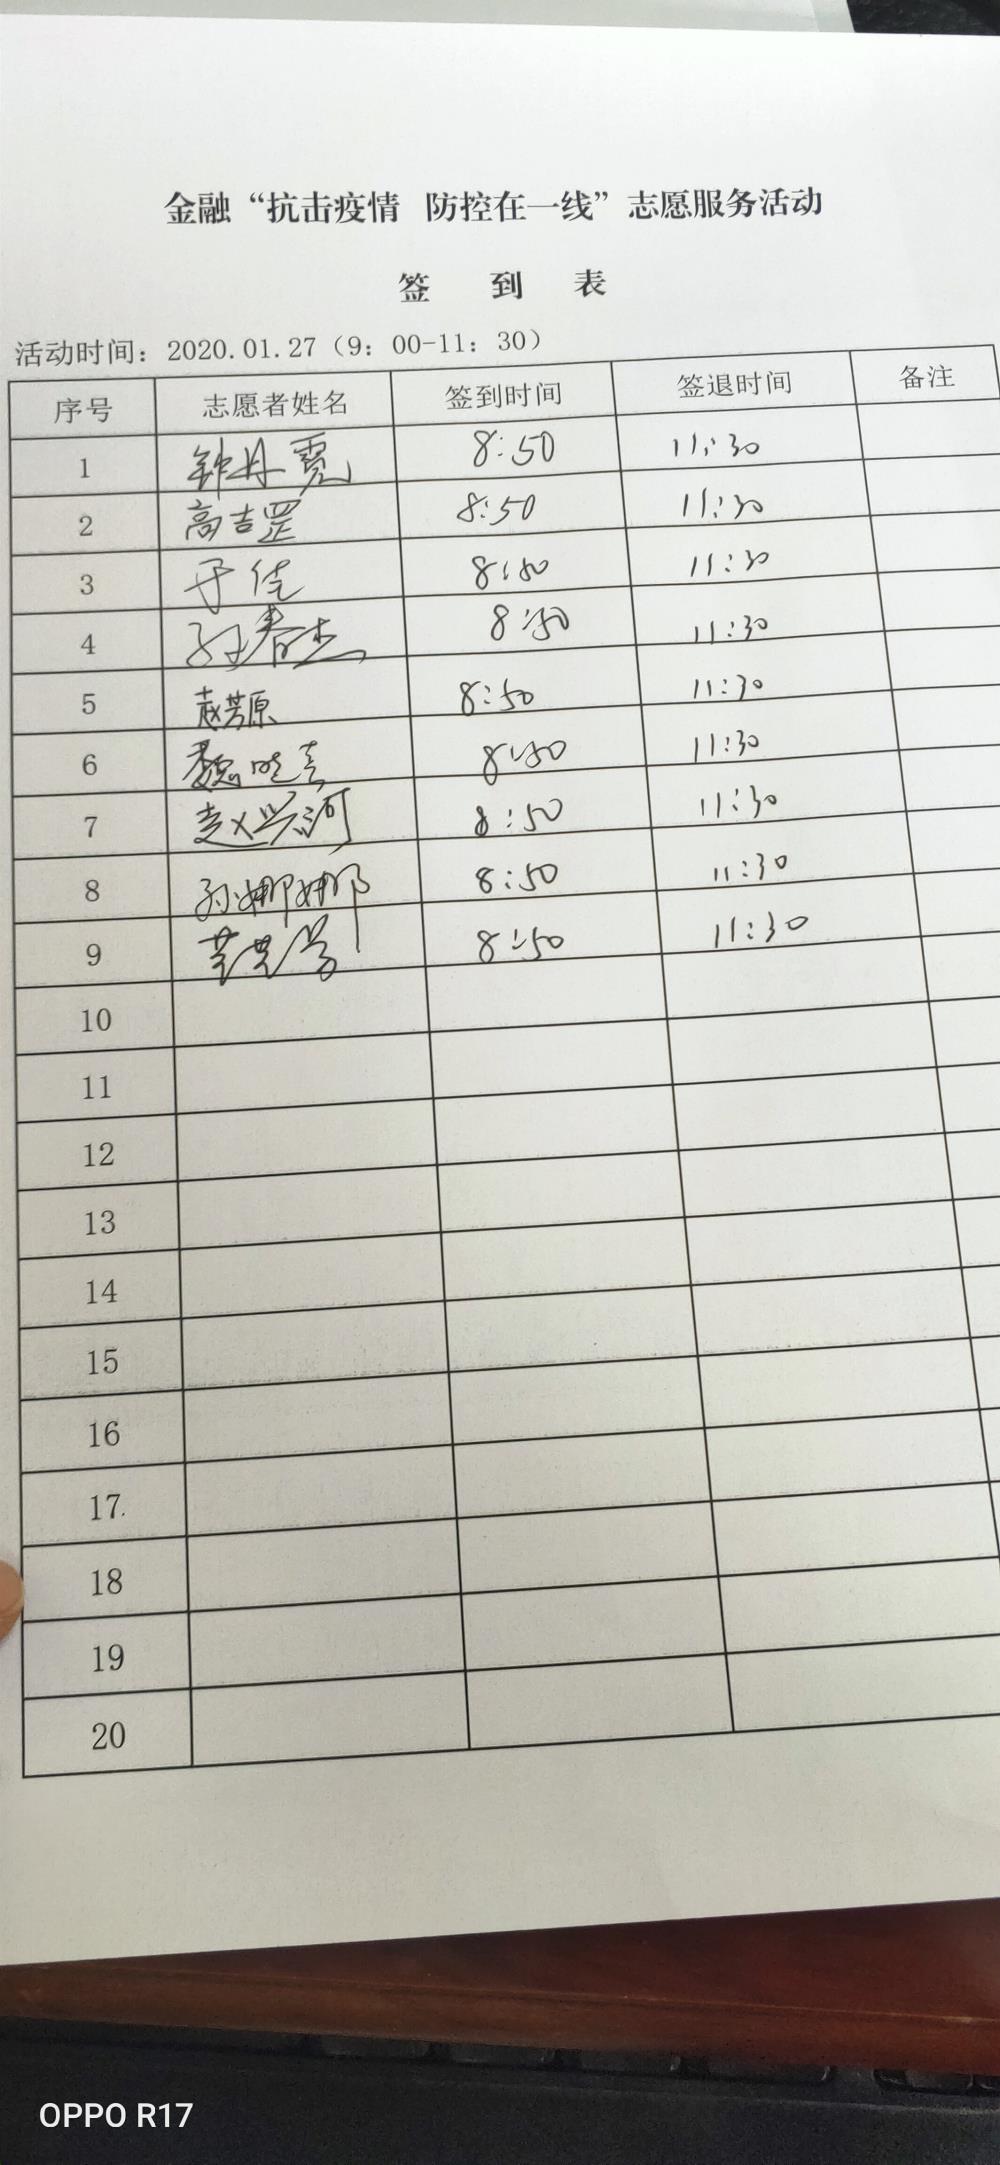 金融“抗击疫情 防控在一线”志愿服务活动
签 到 表
活动时间：2020.01.27（9：00-11：30）
序号 志愿者姓名 签到时间 签退时间 备注
1 钟丹霓 8:50 11:30
2 高吉罡 8:50 11:30
3 于佳 8:50 11:30
4 孙春杰 8:50 11:30
5 赵芳原 8:50 11:30
6 魏 8:50 11:30
7 赵兴河 8:50 11:30
8 孙娜娜 8:50 11:30
9 8:50 11:30
10
11
12
13
14
15
16
17
18
19
20
OPPO R17